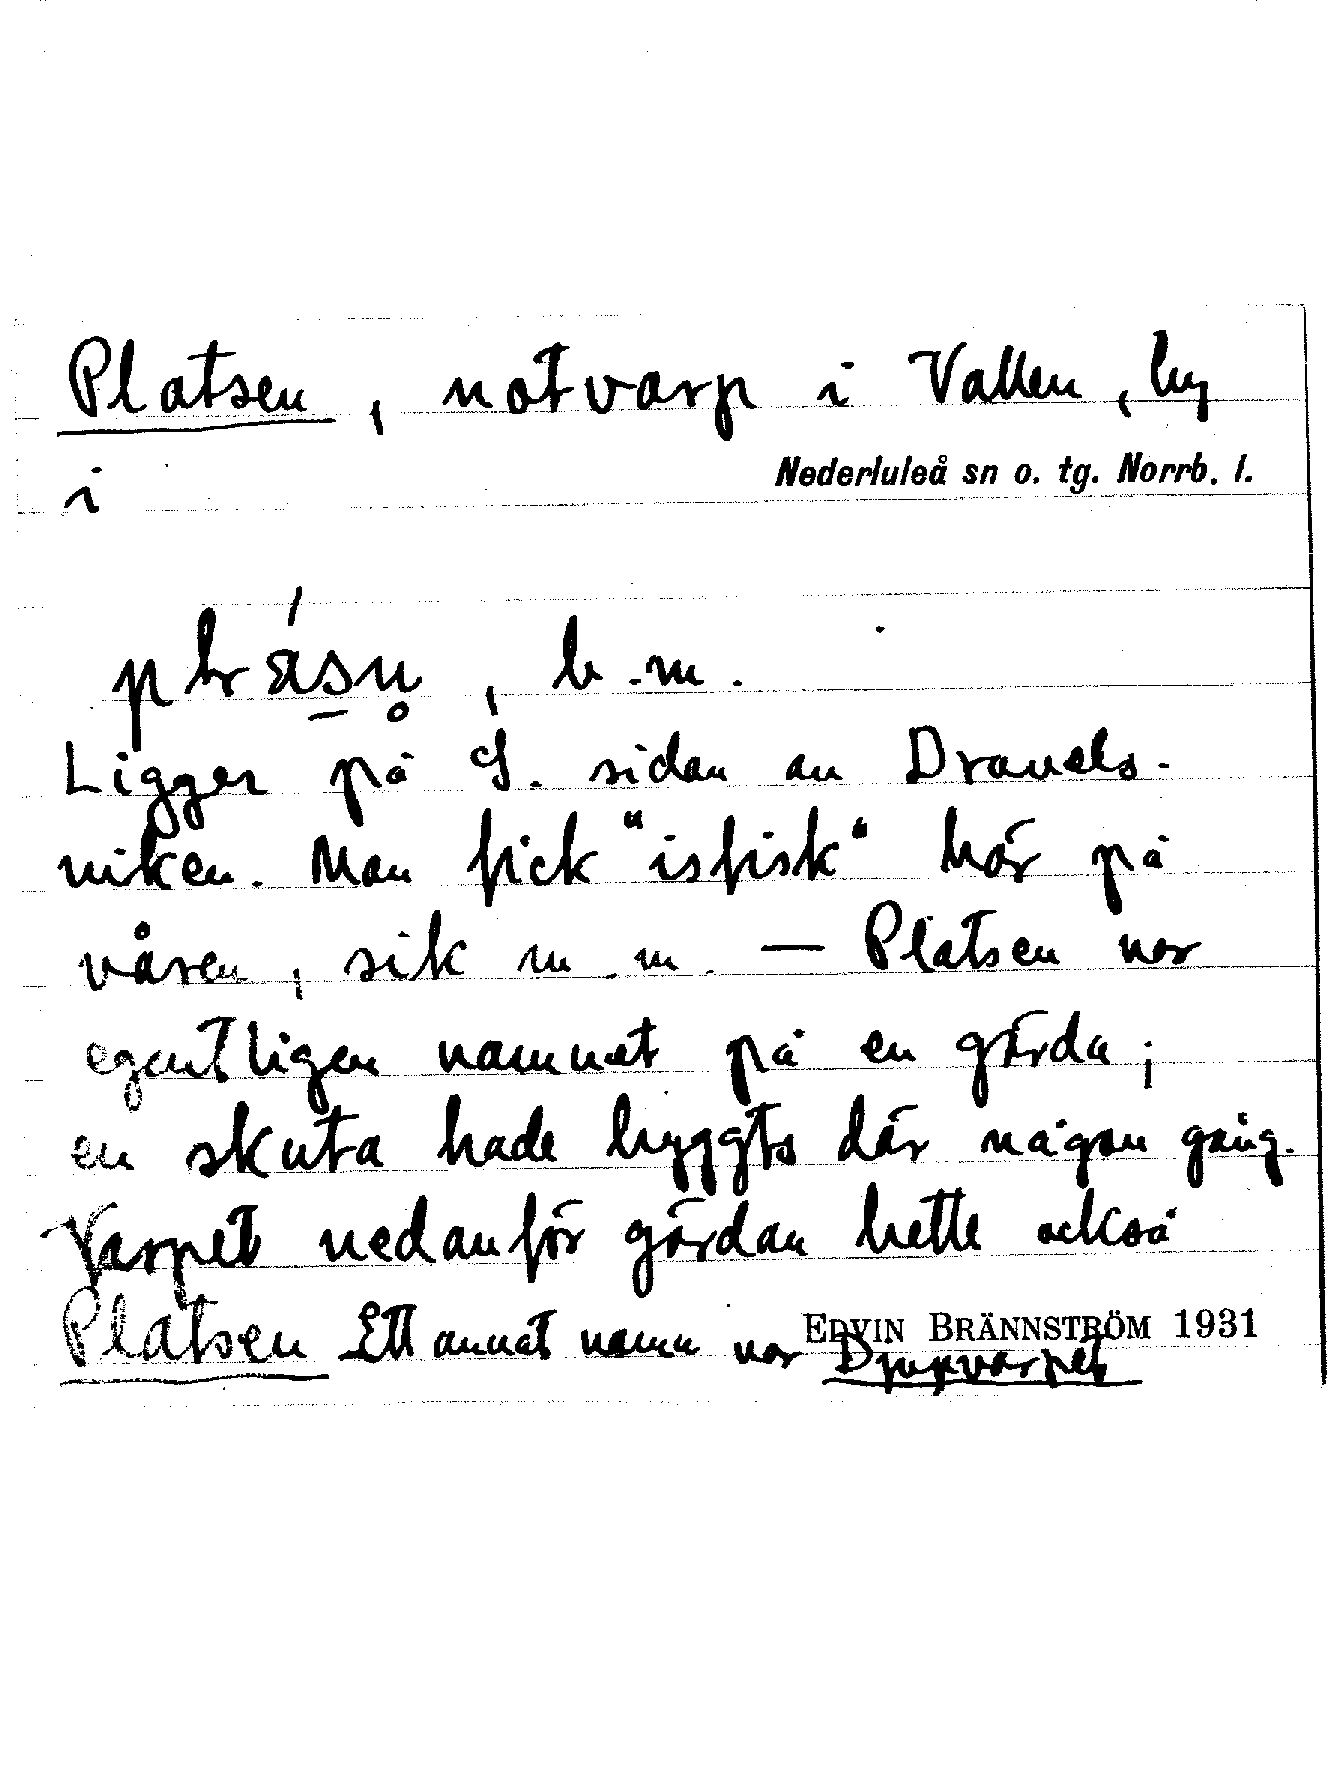 Platsen, notvarp i Vallen, by
i Nederluleå sn o. tg. Norrb. l.
b.m.
Ligger på S. sidan av Dravels-
viken. Man fick "isfisk" här på
våren, sik m.m. — Platsen var
egentligen namnet på en gärda;
en skuta hade byggts där någon gång.
Varpet nedanför gärdan hette också
Platsen Ett annat namn var Djupvarpet
EDVIN BRÄNNSTRÖM 1931